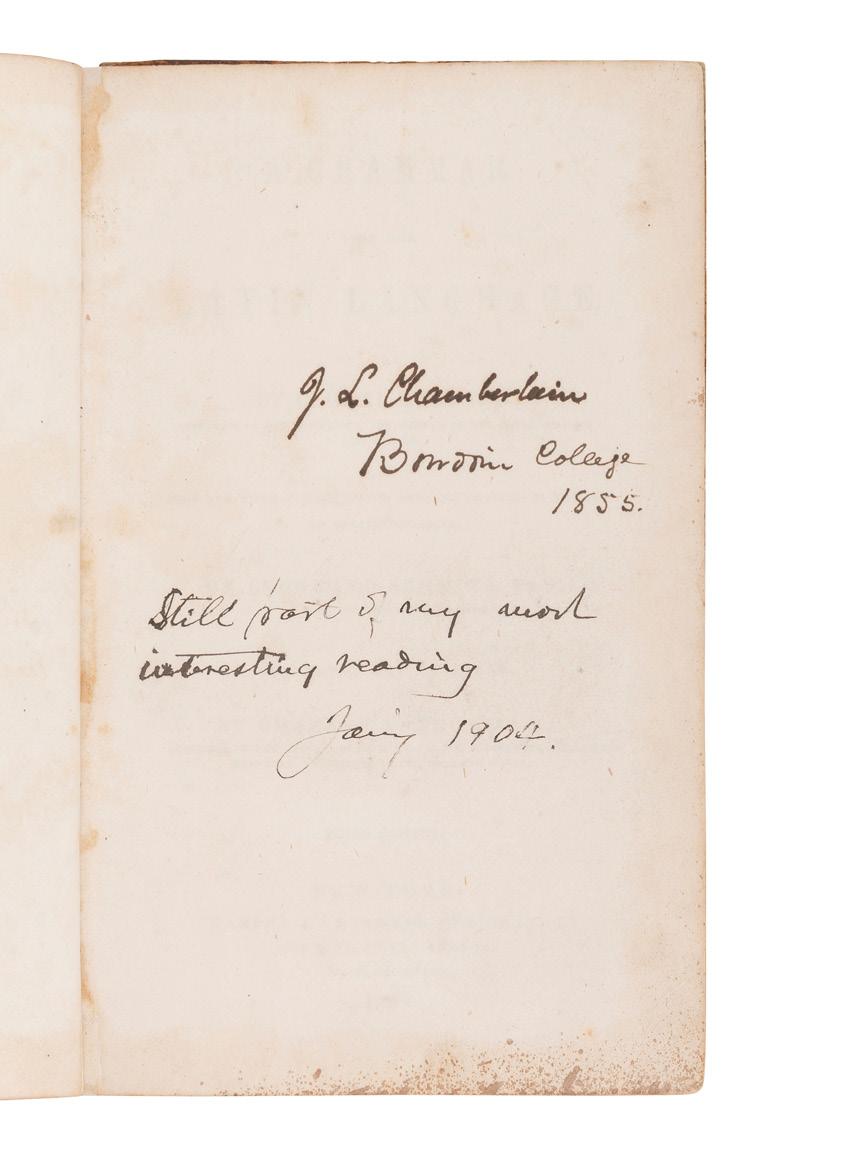 J. L. Chamberlain
Bowdoin College
1855.
Still part of my most
interesting reading
Jany 1904.